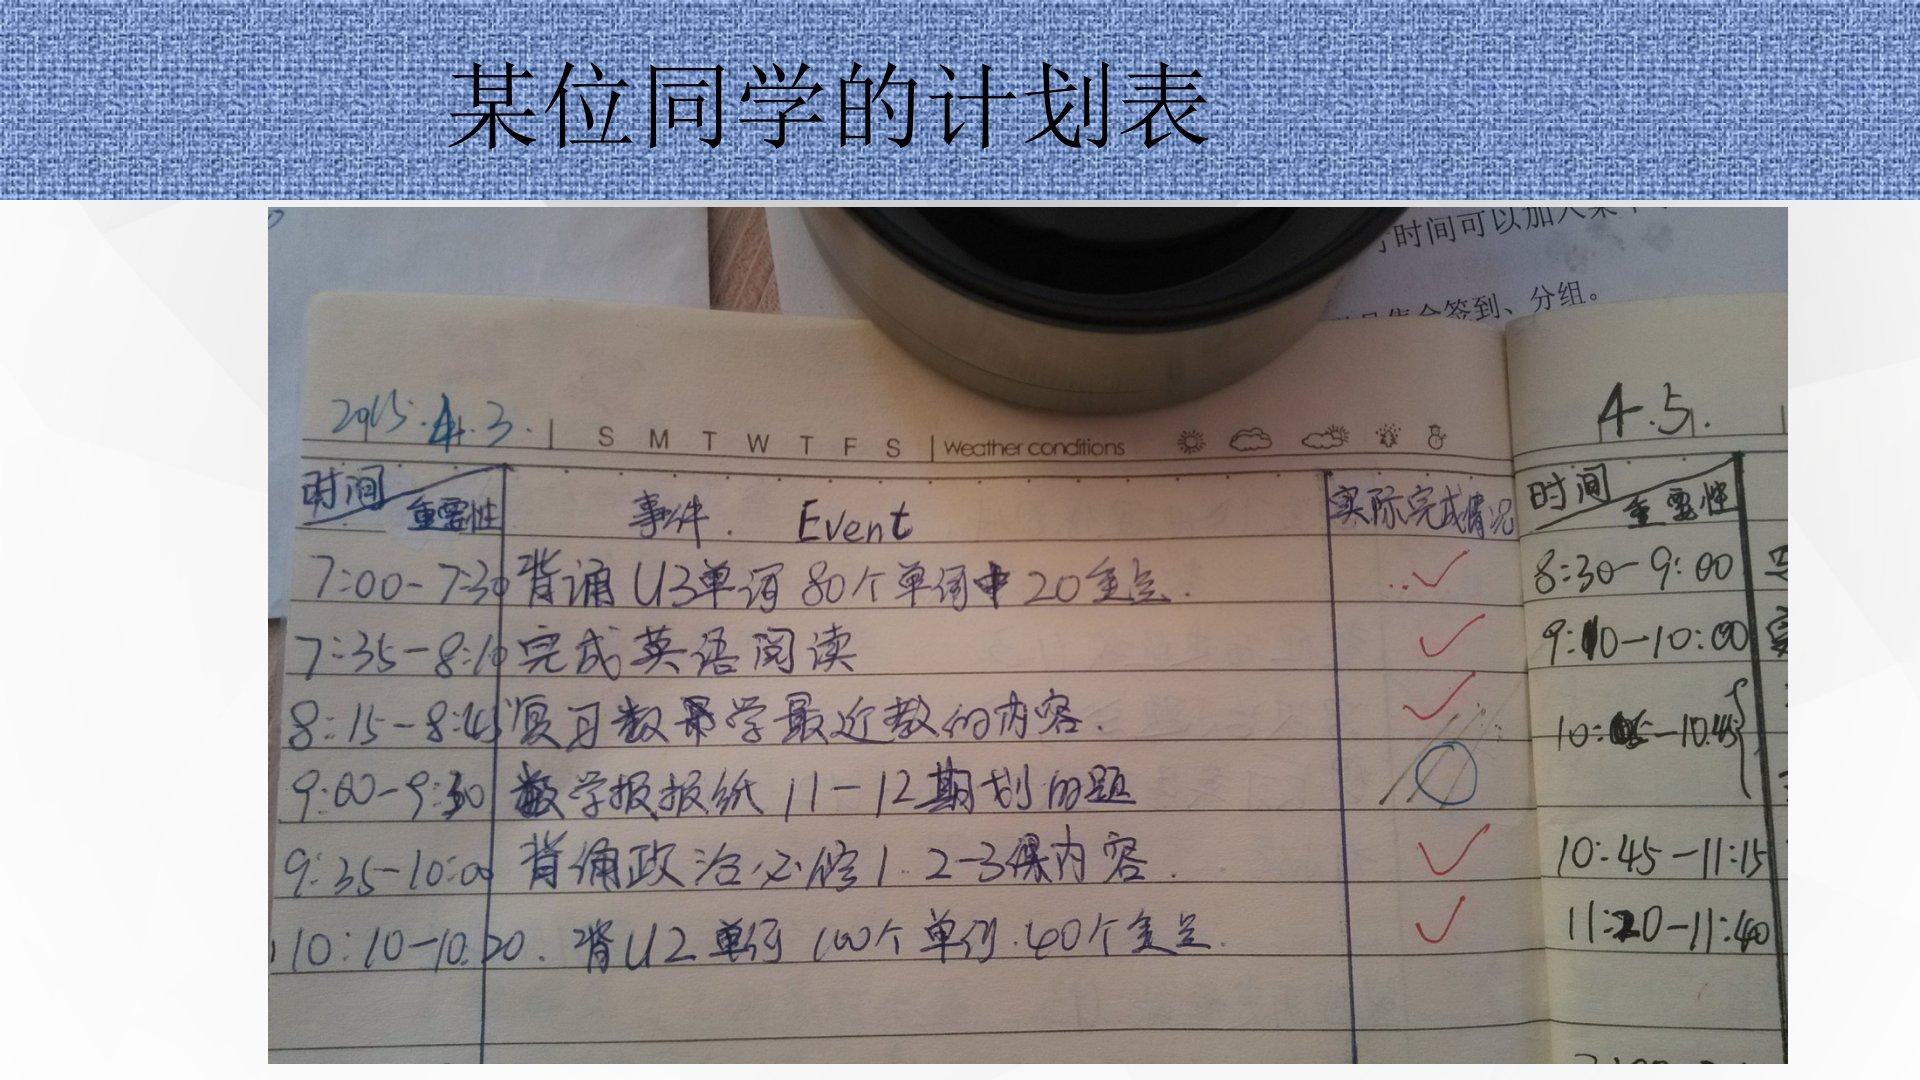 某位同学的计划表
时间可以加入某
集合签到、分组。
2015.4.3.
S M T W T F S Weather conditions
时间 重要性 事件. Event 实际完成情况
7:00-7:30 背诵U3单词 80个单词中20重点.
7:35-8:10 完成英语阅读
8:15-8:45 复习数学最近教的内容.
9:00-9:30 数学报报纸11-12期划的题
9:35-10:00 背诵政治必修1. 2-3课内容.
10:10-10:20. 背U2单词 100个单词.40个重点.
4.5.
时间 重要性
8:30-9:00
9:10-10:00
10:05-10:45
10:45-11:15
11:20-11:40